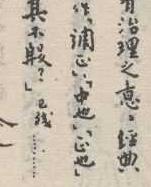 有治理之意；經典
作、調正。」「中也」「正也」
其不殷？」已殘………